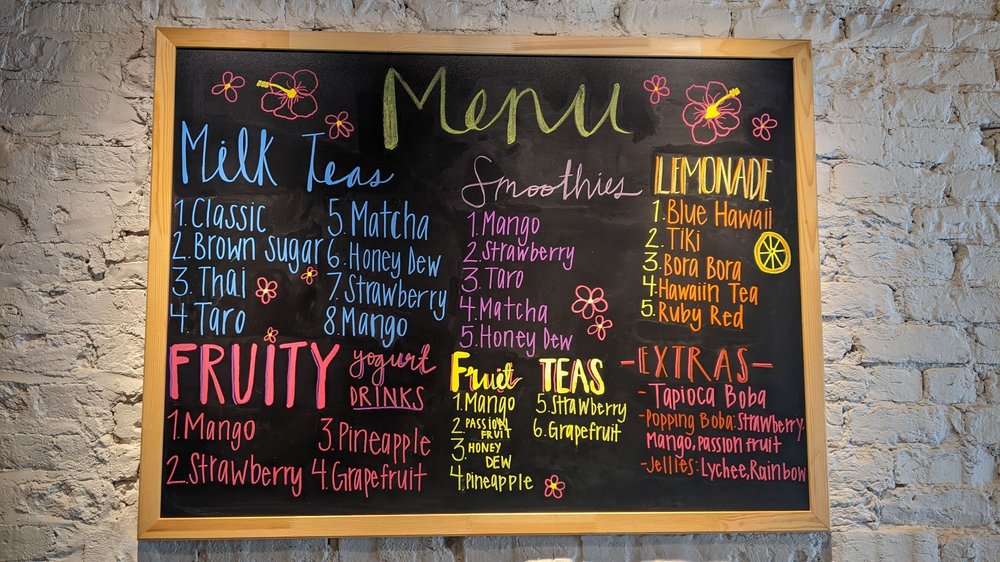 Menu
Milk Teas
1. Classic
2. Brown Sugar
3. Thai
4. Taro
5. Matcha
6. Honey Dew
7. Strawberry
8. Mango
Smoothies
1. Mango
2. Strawberry
3. Taro
4. Matcha
5. Honey Dew
LEMONADE
1. Blue Hawaii
2. Tiki
3. Bora Bora
4. Hawaiin Tea
5. Ruby Red
FRUITY yogurt
DRINKS
1. Mango
2. Strawberry
3. Pineapple
4. Grapefruit
Fruit TEAS
1. Mango
2. PASSION
FRUIT
3. HONEY
DEW
4. Pineapple
5. Strawberry
6. Grapefruit
-EXTRAS-
- Tapioca Boba
- Popping Boba: Strawberry,
Mango, passion fruit
- Jellies: Lychee, Rainbow